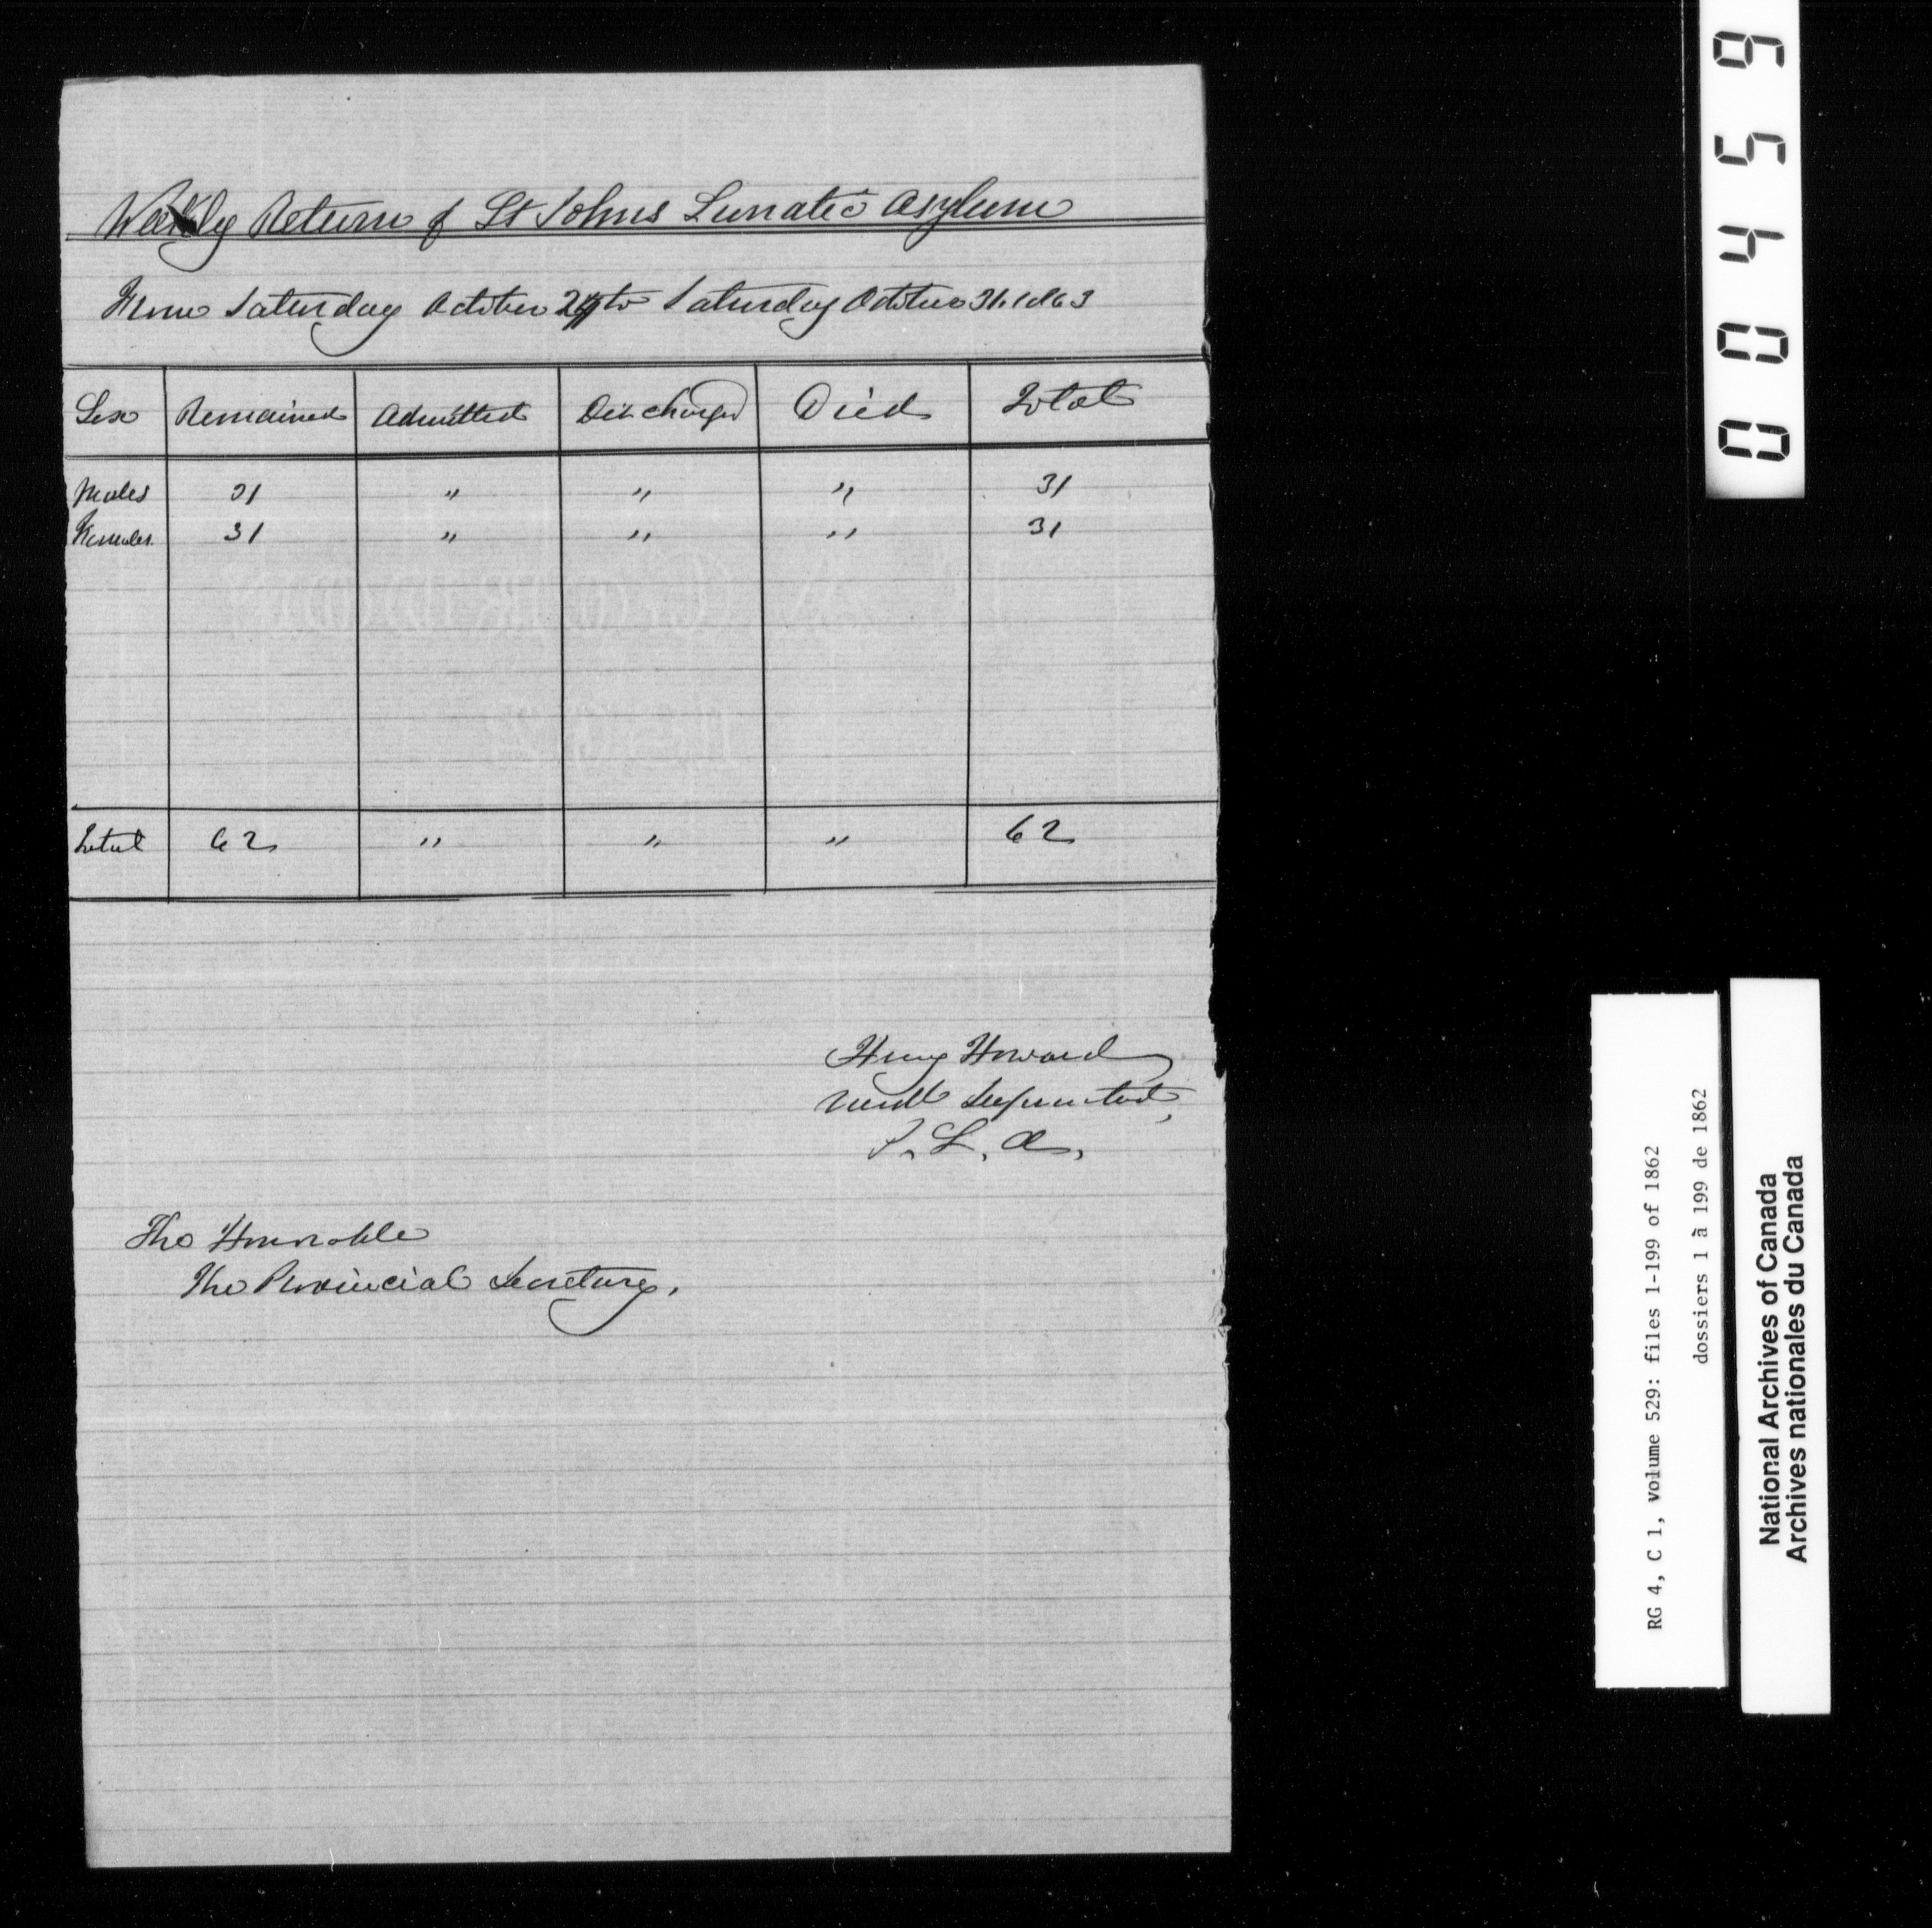 Weekly Return of St Johns Lunatic Asylum
From Saturday October 24 to Saturday October 31. 1863
Sex Remained Admitted Discharged Died Total
Males 31 " " " 31
Females 31 " " " 31
Total 62 " " " 62
Henry Howard
Medl Superintend
S. L. A.
The Honorable
The Provincial Secretary.
00459
RG 4, C 1, volume 529: files 1-199 of 1862
dossiers 1 à 199 de 1862
National Archives of Canada
Archives nationales du Canada